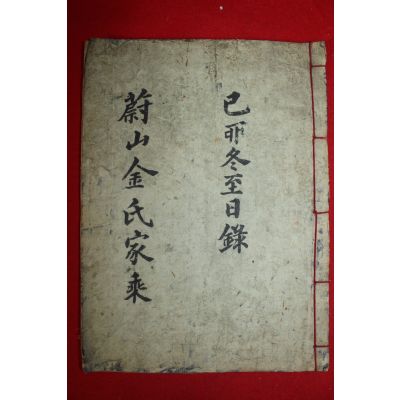 己卯冬至日錄
蔚山金氏家乘